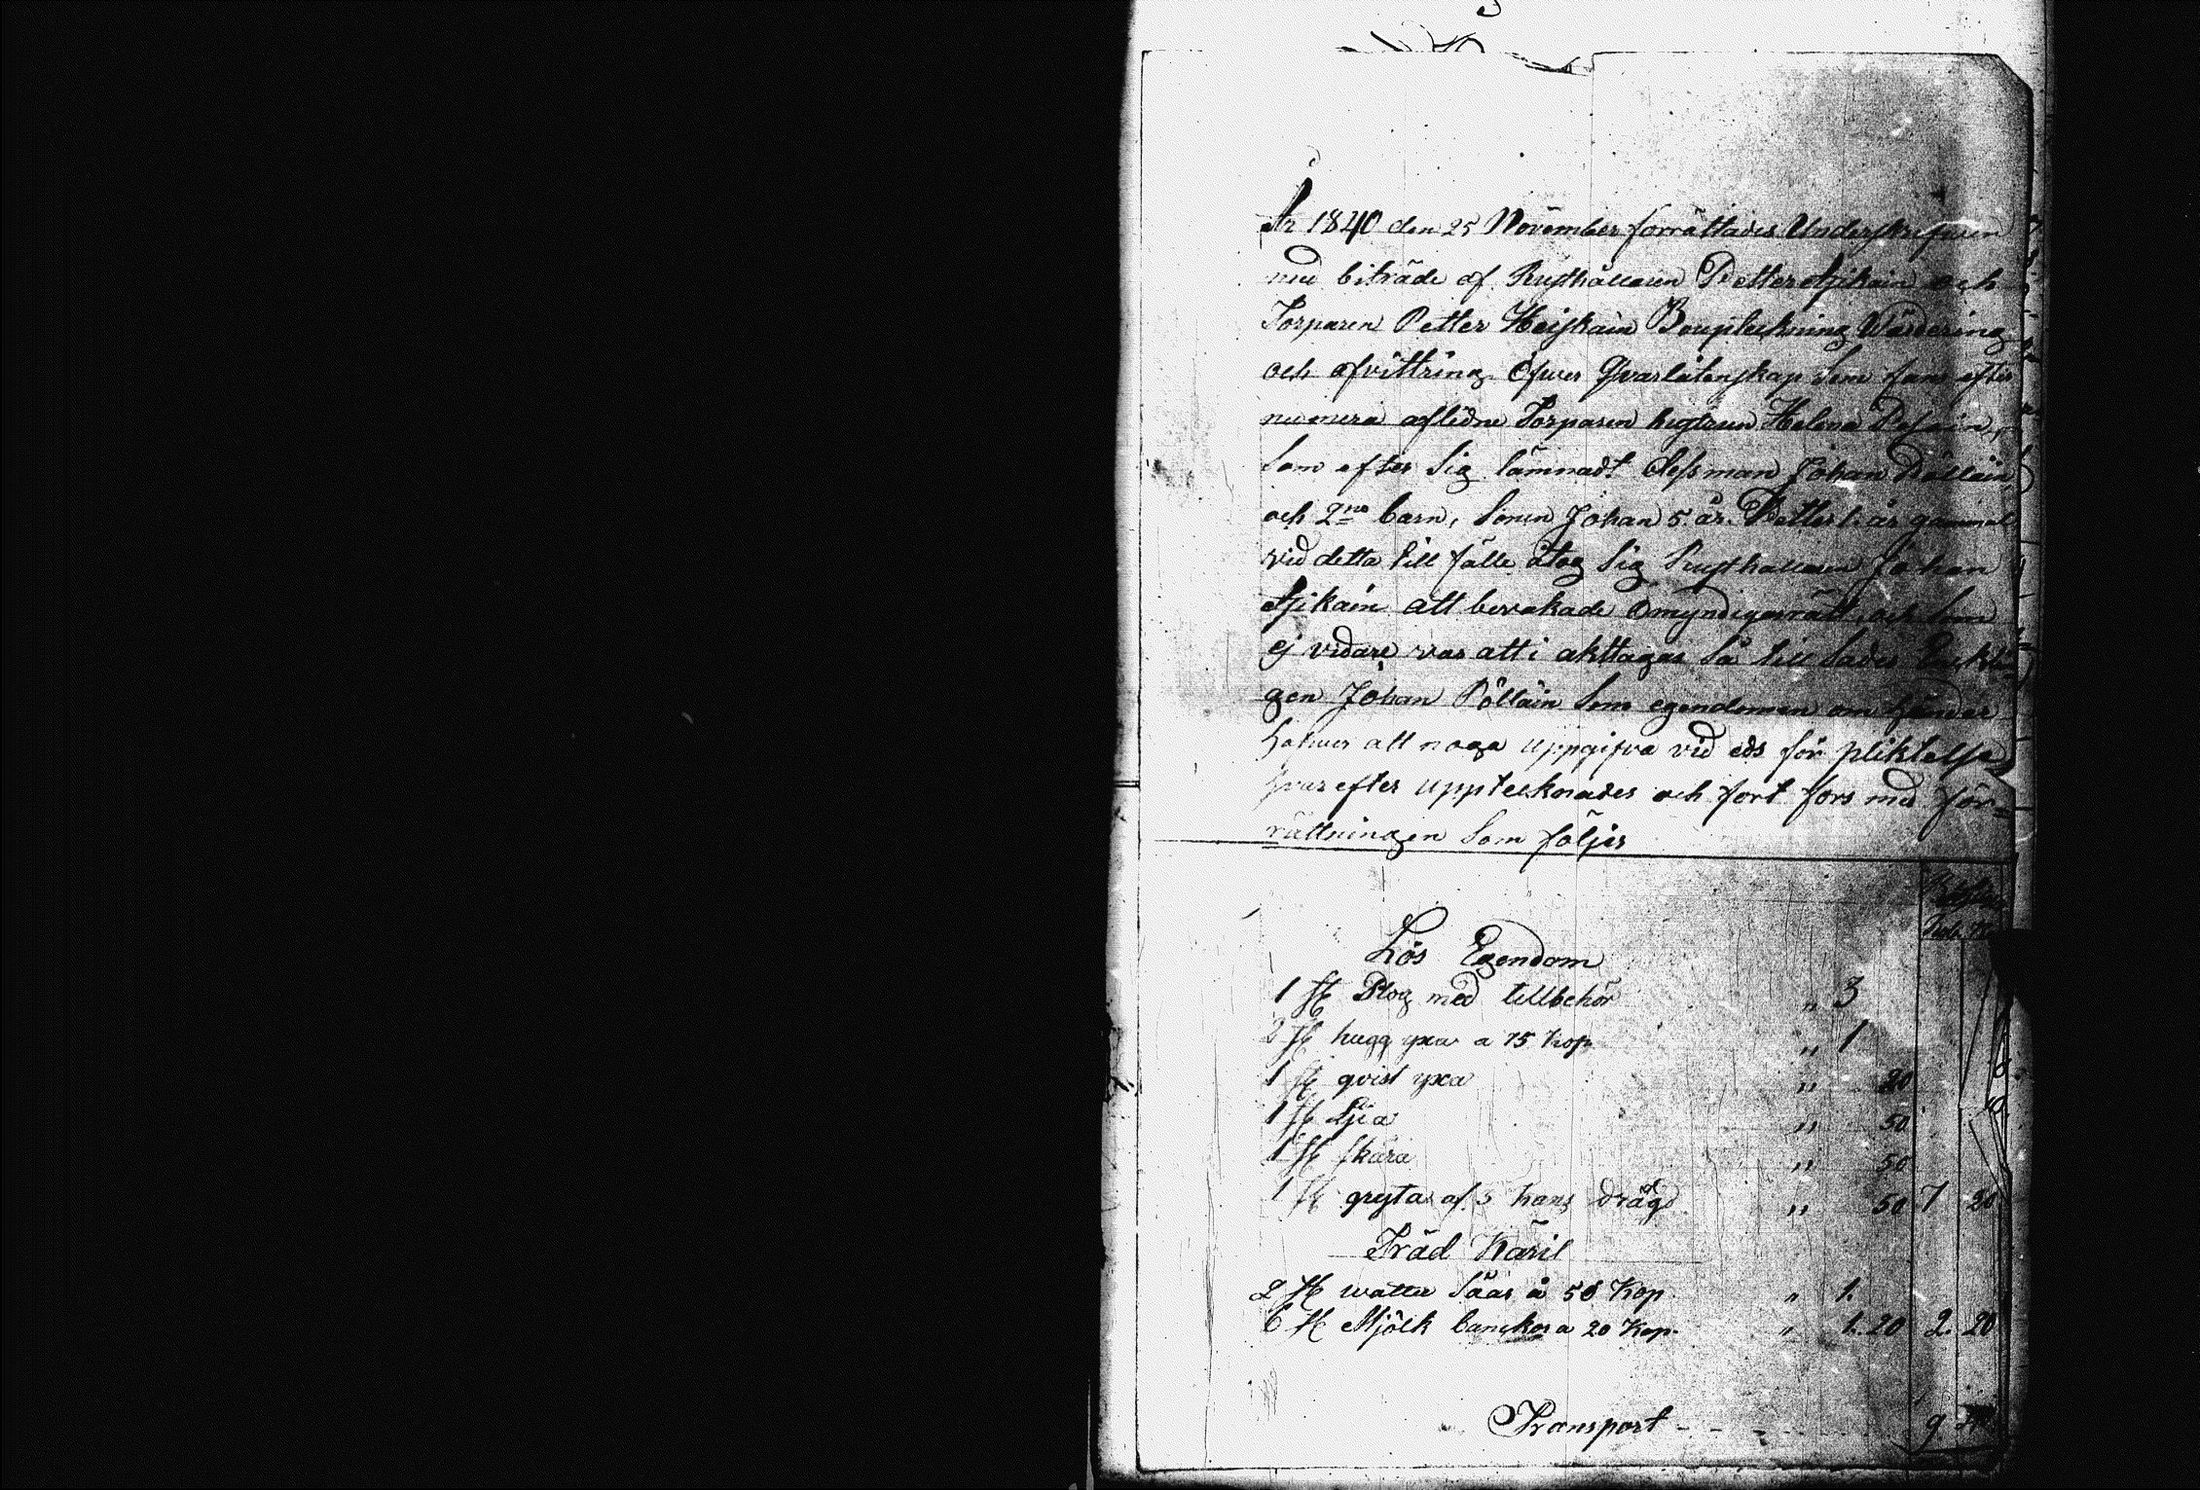 År 1840 den 25 November förrättades Underskrifven
med biträde af Rusthållaren Petter Asikain och
Torparen Petter Heiskain Bouptekning Wärdering
och afvittring öfwer Qvarlåtenskap Som fans efter
nu mera aflidne Torparen hustrun Helena
Som efter Sig lämnadt Ässman Johan Pölläin
och 2ne barn, Sönen Johan 5. år. Petter 1. år gammal
vid detta till fälle åtog Sig Rusthallaren Johan
Asikain att bevakade Omyndigas rätt, och Som
ej vidare var att i akttagas Så till Sades Enklin
gen Johan Pölläin Som egendomen om händer
hafwer att noga uppgifva vid eds för pliktelse
hvar efter upptecknades och fort fors med för=
rättningen Som följer
Lös Egendom
1 St Plog med tillbehör „ 3
2 St hugg yxa a 75 Kop „ 1
1 St qvist yxa „ 20
1 St Ljia „ 50
1 St Skära „ 50
1 St gryta af 3 hans drägd „ 50 7 20
Träd Käril
2 St watten Såår à 50 Kop. „ 1.
6 St Mjölk bunckor a 20 Kop. „ 1. 20 2. 20
Transport - - - - - 9